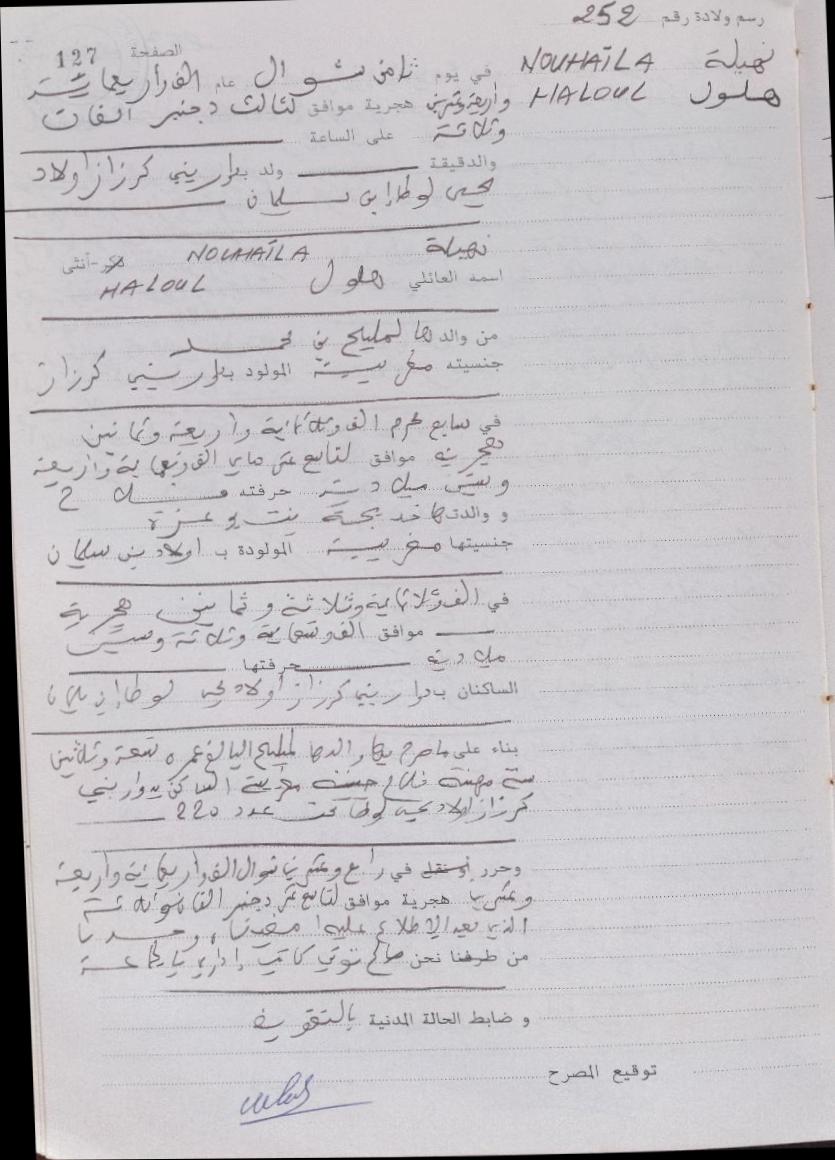 رسم ولادة رقم 252
الصفحة 127
نهيلة NOUHAÏLA
هلول HALOUL
في يوم ثامن شوال عام الف واربعمائة
واربعة وعشرين هجرية موافق لثالث دجنبر الفان
وثلاثة على الساعة
والدقيقة ولد بدوار بني كرزاز اولاد
يحيى لوطا ابن سليمان
نهيلة NOUHAÏLA ذكر-أنثى
اسمه العائلي هلول HALOUL
من والدها لمليح بن محمد
جنسيته مغربية المولود بدوار بني كرزاز
في سابع محرم الف وثلاثمائة واربعة وثمانين
هجرية موافق لتاسع عشر ماي الف وتسعمائة واربعة
وستين ميلادية حرفته فلاح
و والدتها خديجة بنت بوعزة
جنسيتها مغربية المولودة ب اولاد بن سليمان
في الف وثلاثمائة وثلاثة وثمانين هجرية
موافق الف وتسعمائة وثلاثة وستين
ميلادية حرفتها
الساكنان بدوار بني كرزاز اولاد يحيى لوطا ابن سليمان
بناء على ما صرح به والدها لمليح البالغ عمره تسعة وثلاثين
سنة مهنته فلاح جنسيته مغربية الساكن بدوار بني
كرزاز اولاد يحيى لوطا تحت عدد 220
وحرر أو نقل في رابع وعشرين شوال الف واربعمائة واربعة
وعشرين هجرية موافق لتاسع عشر دجنبر الفان وثلاثة
الذي بعد الاطلاع عليه امضيناه وحدنا
من طرفنا نحن صالح توتي كاتب إداري بالجماعة
و ضابط الحالة المدنية بالتفويض
توقيع المصرح